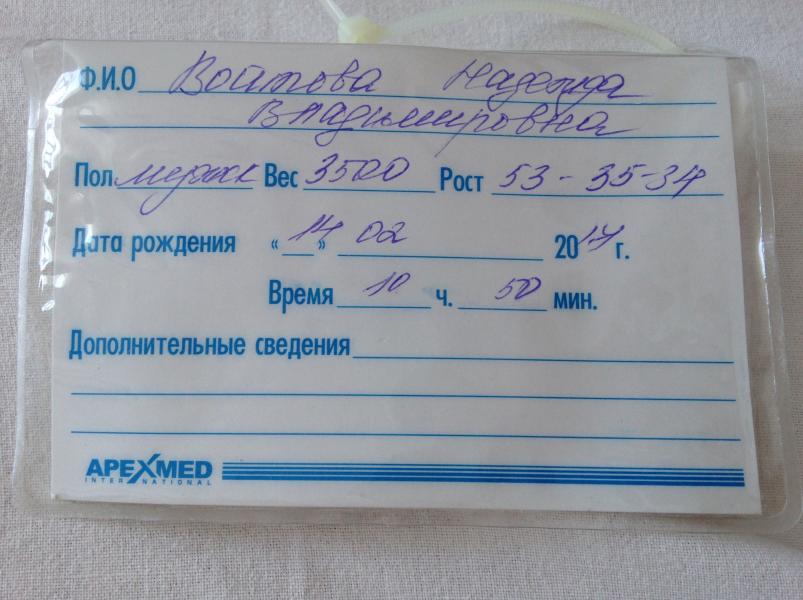 Ф.И.О Войтова Надежда
Владимировна
Пол мужск Вес 3500 Рост 53 - 35-34
Дата рождения «14» 02 2017 г.
Время 10 ч. 50 мин.
Дополнительные сведения
APEXMED
INTERNATIONAL